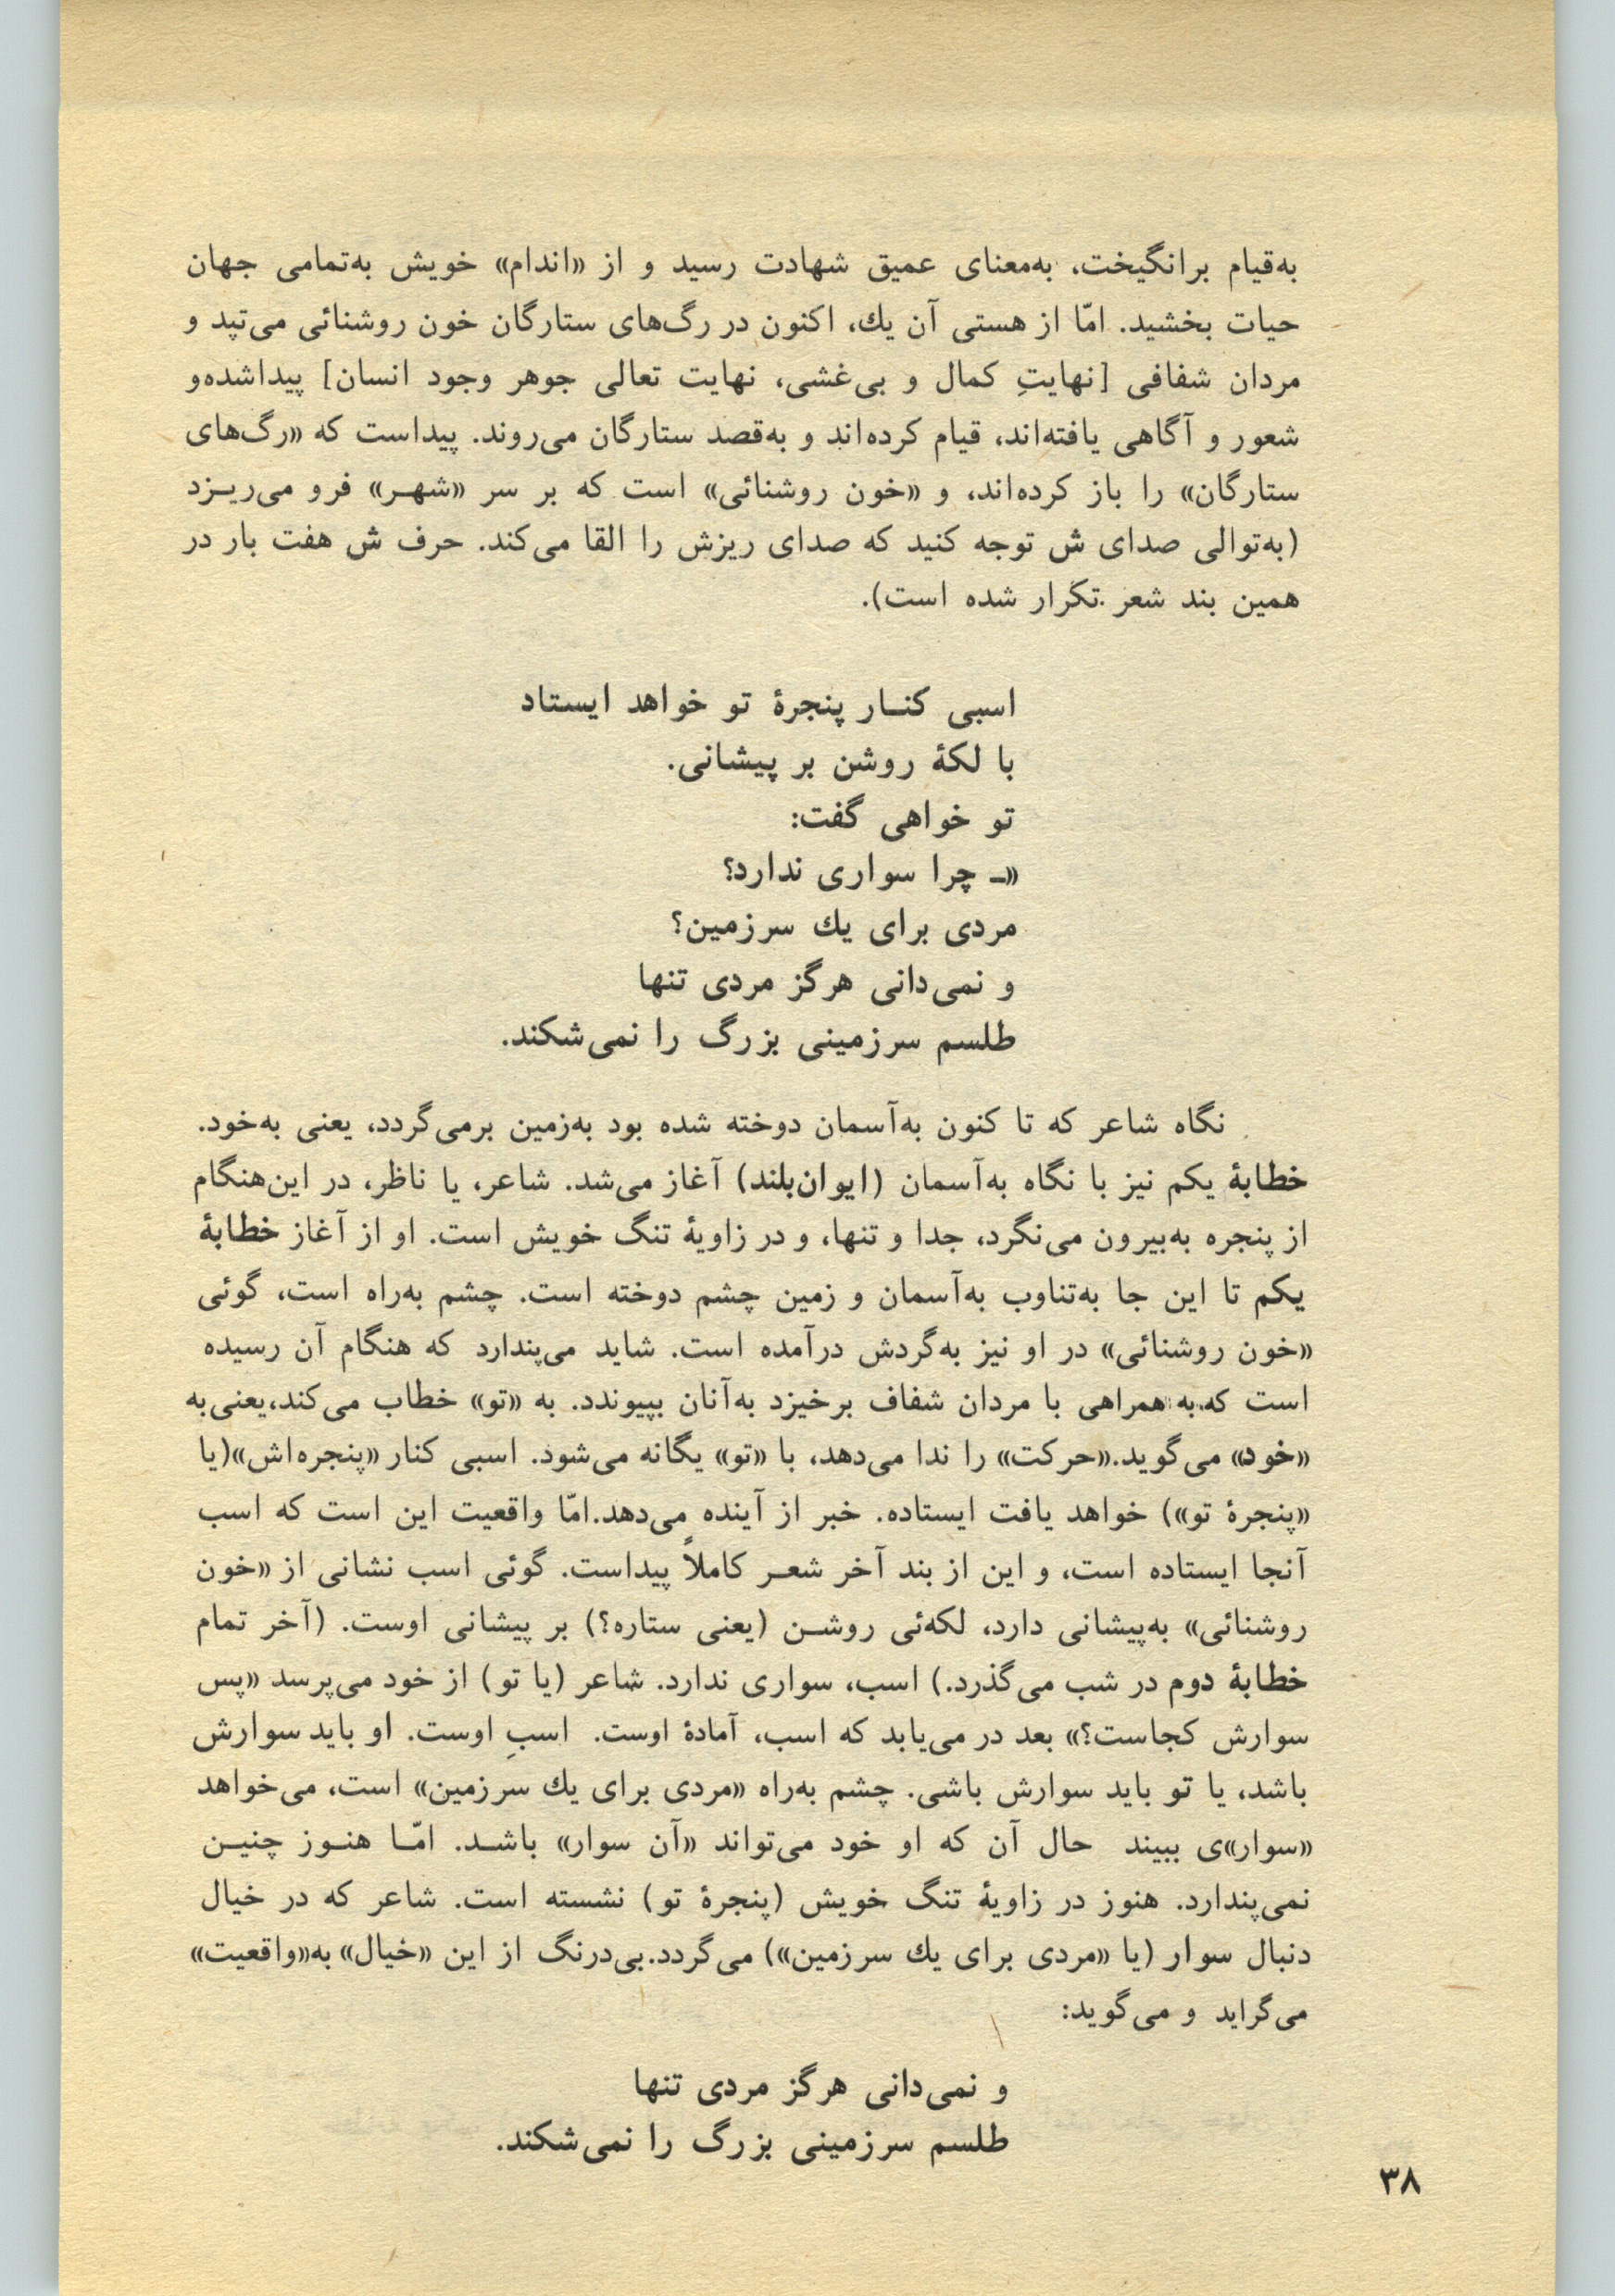 به‌قیام برانگیخت، به‌معنای عمیق شهادت رسید و از «اندام» خویش به‌تمامی جهان
حیات بخشید. امّا از هستی آن یك، اکنون در رگ‌های ستارگان خون روشنائی می‌تپد و
مردان شفافی [نهایتِ کمال و بی‌غشی، نهایت تعالی جوهر وجود انسان] پیداشده‌و
شعور و آگاهی یافته‌اند، قیام کرده‌اند و به‌قصد ستارگان می‌روند. پیداست که «رگ‌های
ستارگان» را باز کرده‌اند، و «خون روشنائی» است که بر سر «شهـر» فرو می‌ریـزد
(به‌توالی صدای ش توجه کنید که صدای ریزش را القا می‌کند. حرف ش هفت بار در
همین بند شعر تکرار شده است).
اسبی کنـار پنجرهٔ تو خواهد ایستاد
با لکهٔ روشن بر پیشانی.
تو خواهی گفت:
«ـ چرا سواری ندارد؟
مردی برای یك سرزمین؟
و نمی‌دانی هرگز مردی تنها
طلسم سرزمینی بزرگ را نمی‌شکند.
نگاه شاعر که تا کنون به‌آسمان دوخته شده بود به‌زمین برمی‌گردد، یعنی به‌خود.
خطابهٔ یکم نیز با نگاه به‌آسمان (ایوان‌بلند) آغاز می‌شد. شاعر، یا ناظر، در این‌هنگام
از پنجره به‌بیرون می‌نگرد، جدا و تنها، و در زاویهٔ تنگ خویش است. او از آغاز خطابهٔ
یکم تا این جا به‌تناوب به‌آسمان و زمین چشم دوخته است. چشم به‌راه است، گوئی
«خون روشنائی» در او نیز به‌گردش درآمده است. شاید می‌پندارد که هنگام آن رسیده
است که به همراهی با مردان شفاف برخیزد به‌آنان بپیوندد. به «تو» خطاب می‌کند،یعنی‌به
«خود» می‌گوید.«حرکت» را ندا می‌دهد، با «تو» یگانه می‌شود. اسبی کنار «پنجره‌اش»(یا
«پنجرهٔ تو») خواهد یافت ایستاده. خبر از آینده می‌دهد.امّا واقعیت این است که اسب
آنجا ایستاده است، و این از بند آخر شعـر کاملاً پیداست. گوئی اسب نشانی از «خون
روشنائی» به‌پیشانی دارد، لکه‌ئی روشـن (یعنی ستاره؟) بر پیشانی اوست. (آخر تمام
خطابهٔ دوم در شب می‌گذرد.) اسب، سواری ندارد. شاعر (یا تو) از خود می‌پرسد «پس
سوارش کجاست؟» بعد در می‌یابد که اسب، آمادهٔ اوست. اسبِ اوست. او باید سوارش
باشد، یا تو باید سوارش باشی. چشم به‌راه «مردی برای یك سرزمین» است، می‌خواهد
«سوار»ی ببیند حال آن که او خود می‌تواند «آن سوار» باشـد. امّـا هنـوز چنیـن
نمی‌پندارد. هنوز در زاویهٔ تنگ خویش (پنجرهٔ تو) نشسته است. شاعر که در خیال
دنبال سوار (یا «مردی برای یك سرزمین») می‌گردد.بی‌درنگ از این «خیال» به«واقعیت»
می‌گراید و می‌گوید:
و نمی‌دانی هرگز مردی تنها
طلسم سرزمینی بزرگ را نمی‌شکند.
۳۸